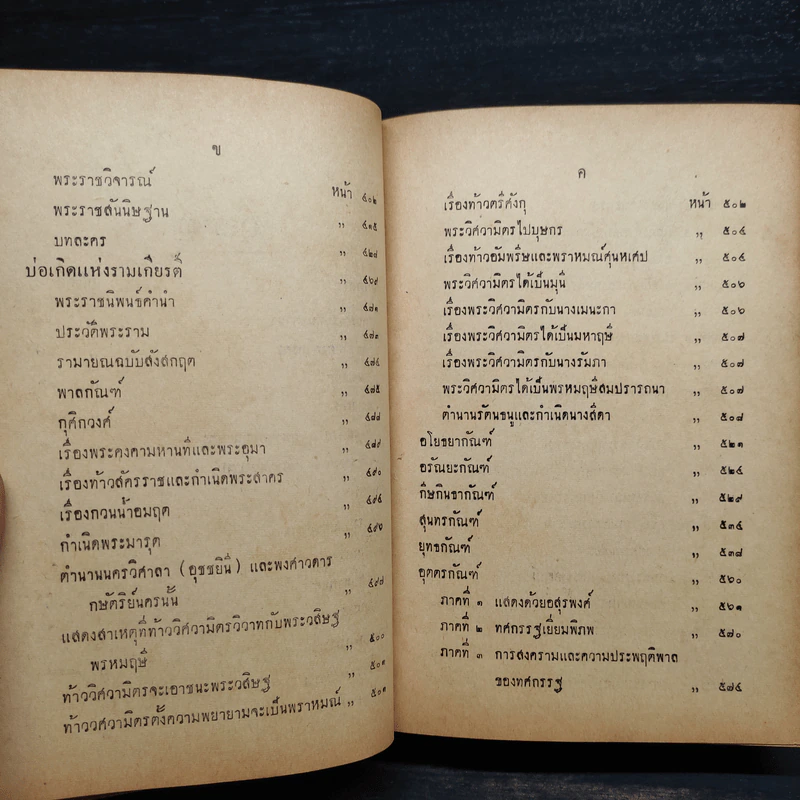 ข
หน้า
พระราชวิจารณ์ ๔๐๒
พระราชสันนิษฐาน ,, ๔๑๕
บทละคร ,, ๔๒๘
บ่อเกิดแห่งรามเกียรติ์ ,, ๔๖๙
พระราชนิพนธ์คำนำ ,, ๔๗๑
ประวัติพระราม ,, ๔๗๒
รามายณฉบับสังสกฤต ,, ๔๗๔
พาลกัณฑ์ ,, ๔๗๕
กุศิกวงศ์ ,, ๔๘๘
เรื่องพระคงคามหานทีและพระอุมา ,, ๔๘๙
เรื่องท้าวสัครราชและกำเนิดพระสาคร ,, ๔๙๐
เรื่องกวนน้ำอมฤต ,, ๔๙๔
กำเนิดพระมารุต ,, ๔๙๖
ตำนานนครวิศาลา (อุชชยินี) และพงศาวดาร
กษัตริย์นครนั้น ,, ๔๙๗
แสดงสาเหตุที่ท้าววิศวามิตรวิวาทกับพระวสิษฐ
พรหมฤษี ,, ๕๐๐
ท้าววิศวามิตรจะเอาชนะพระวสิษฐ ,, ๕๐๑
ท้าววิศวามิตรตั้งความพยายามจะเป็นพราหมณ์ ,, ๕๐๑
ค
เรื่องท้าวตรีศังกุ หน้า ๕๐๒
พระวิศวามิตรไปบุษกร ,, ๕๐๔
เรื่องท้าวอัมพรีษและพราหมณ์ศุนหเศป ,, ๕๐๔
พระวิศวามิตรได้เป็นมุนี ,, ๕๐๖
เรื่องพระวิศวามิตรกับนางเมนะกา ,, ๕๐๖
เรื่องพระวิศวามิตรได้เป็นมหาฤษี ,, ๕๐๗
เรื่องพระวิศวามิตรกับนางรัมภา ,, ๕๐๗
พระวิศวามิตรได้เป็นพรหมฤษีสมปรารถนา ,, ๕๐๗
ตำนานรัตนธนูและกำเนิดนางสีดา ,, ๕๐๘
อโยธยากัณฑ์ ,, ๕๒๑
อรัณยะกัณฑ์ ,, ๕๒๔
กีษกินธากัณฑ์ ,, ๕๒๙
สุนทรกัณฑ์ ,, ๕๓๔
ยุทธกัณฑ์ ,, ๕๓๘
อุตตรกัณฑ์ ,, ๕๖๐
ภาคที่ ๑ แสดงด้วยอสุรพงศ์ ,, ๕๖๑
ภาคที่ ๒ ทศกรรฐเยี่ยมพิภพ ,, ๕๗๐
ภาคที่ ๓ การสงครามและความประพฤติพาล
ของทศกรรฐ ,, ๕๗๔